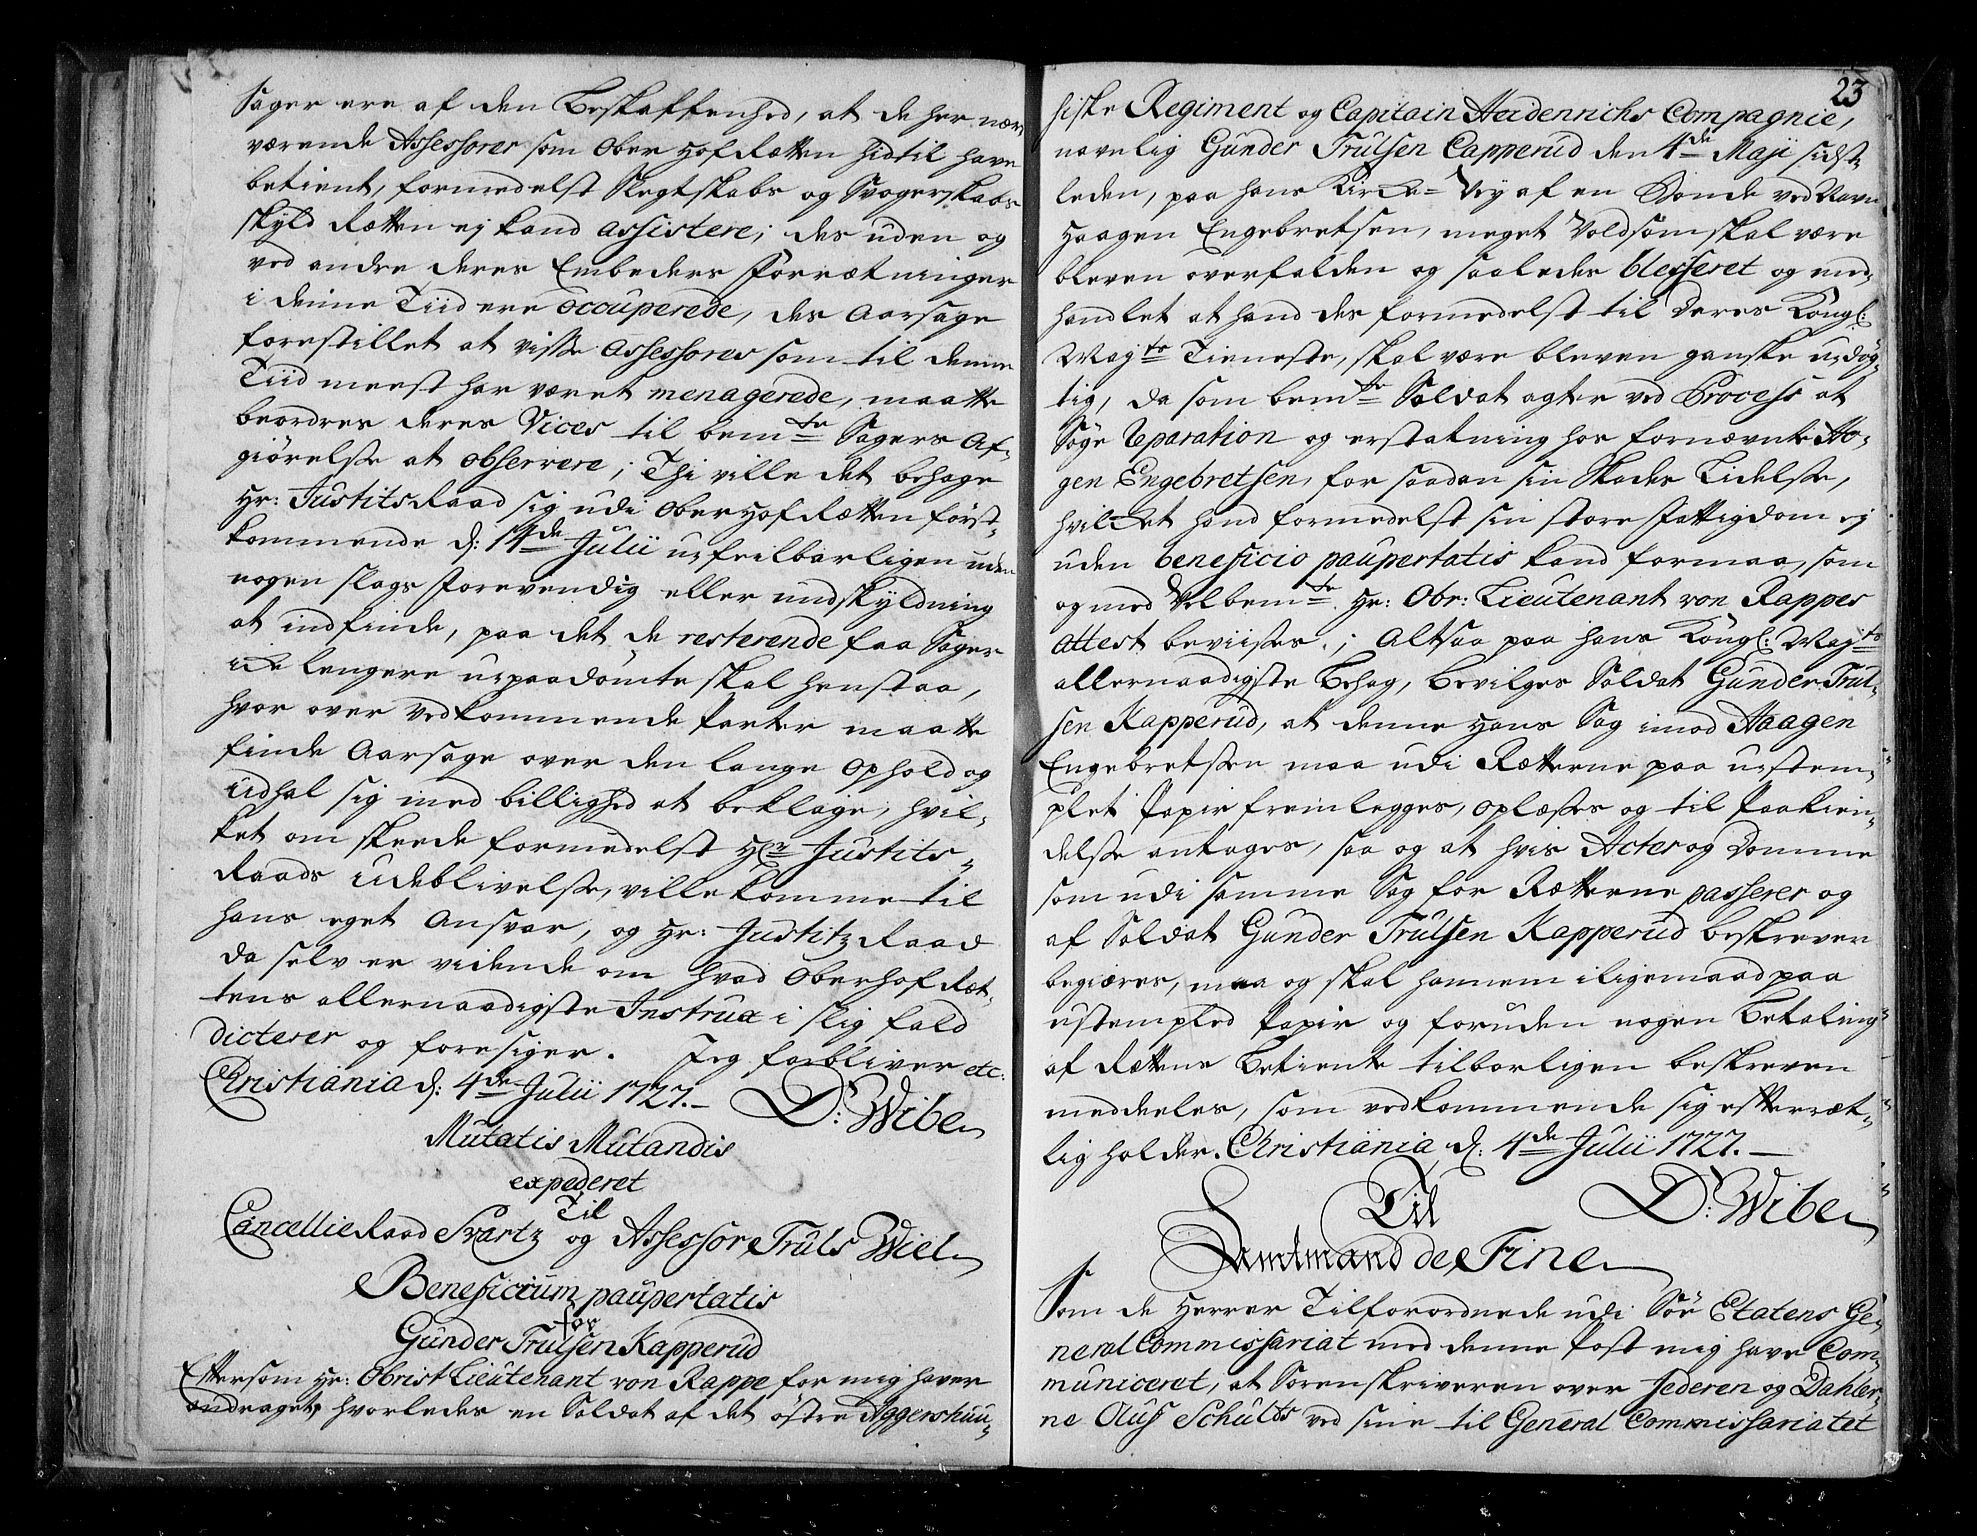 Sager ere af den Beskaffenhed, at de her nær,
værende Assessorer som Ober Hof Retten hidtil have
betient, formedelst Slegtskabs og Svogerskabs
skyld Retten ej kand assistere; des uden og
ved andre deres Embeders Forretninger
i denne Tiid ere occuperede, des Aarsage
forestillet at visse Assessores som til denne
Tiid meest har været menagerede, maatte
beordres deres Vices til bemte Sagers Af-
giørelse at observere; Thi ville det behage
Hr: Justits Raad sig udi Ober Hof Retten först-
kommende d: 14de Julii ufeilbarligen uden
nogen slags Forevending eller undskyldning
at indfinde, paa det de resterende faa Sager
icke lengere upaadömte skal henstaa,
hvor over Vedkommende Parter maatte
finde Aarsage over den lange Ophold og
Udhal sig med billighed at beklage, hvil-
ket om skeede formedelst Hr Justits-
Raads Udeblivelse, ville komme til
hans eget Ansvar, og Hr: Justitz Raad
da selv er vidende om hvad Oberhof Ret-
tens allernaadigste Instrux i slig fald
dicterer og foresiger. Jeg forbliver etc:
Christiania d: 4de Julii 1727. D: Wibe
Mutatis Mutandis
expederet
Til
Cancellie Raad Svartz og Assessor Truls Wiel
Beneficium paupertatis
for
Gunder Trulsen Kapperud
Eftersom Hr: Obrist Lieutenant von Rappe for mig haver
andraget, hvorledes en Soldat af det östre Aggershuu-
23
siske Regiment og Capitain Heidenrichs Compagnie,
navnlig Gunder Trulsen Capperud den 4de Maji sidst-
leden, paa hans Kircke-Vey af en Bonde ved Navn
Haagen Engebretsen, meget Voldsom skal være
bleven overfalden og saaledes blesseret og med-
handlet at hand des formedelst til Deres Kongl:
Majts Tieneste, skal være bleven ganske udög-
tig, da som bemte Soldat agter ved Process at
Söge Reparation og erstatning hos fornævnte Ha-
gen Engebretsen, for saadan sin Skades Lidelse,
hvilcket hand formedelst sin store Fattigdom ej
uden beneficio paupertatis kand formaa, som
og med Velbemte Hr: Obr: Lieutenant von Rappes
Attest beviises.; Altsaa paa hans Kongl: Majts
allernaadigste Behag, bevilges Soldat Gunder Trul-
sen Kapperud, at denne Hans Sag imod Haagen
Engebretsen maa udi Retterne paa ustem-
plet Papir fremlegges, oplæses og til Paakien-
delse antages, saa og at hvis Acter og Domme
som udi samme Sag for Retterne passerer og
af Soldat Gunder Trulsen Kapperud beskreven
begiæres, maa og skal hannem iligemaad paa
ustemplet Papir og foruden nogen betaling
af Rettens Betiente tilbörligen beskreven
meddeeles, som vedkommende sig efterret-
lig holder. Christiania d: 4de Julii 1727.
D: Wibe
Til
Amtmand de Fine
Som de Herrer Tilforordnede udi Söe Etatens Ge-
neral Commissariat med denne Post mig have Com-
municeret, at Sorenskriveren over Jederen og Dahler-
ne Oluf Schults ved sine til General Commissariatet